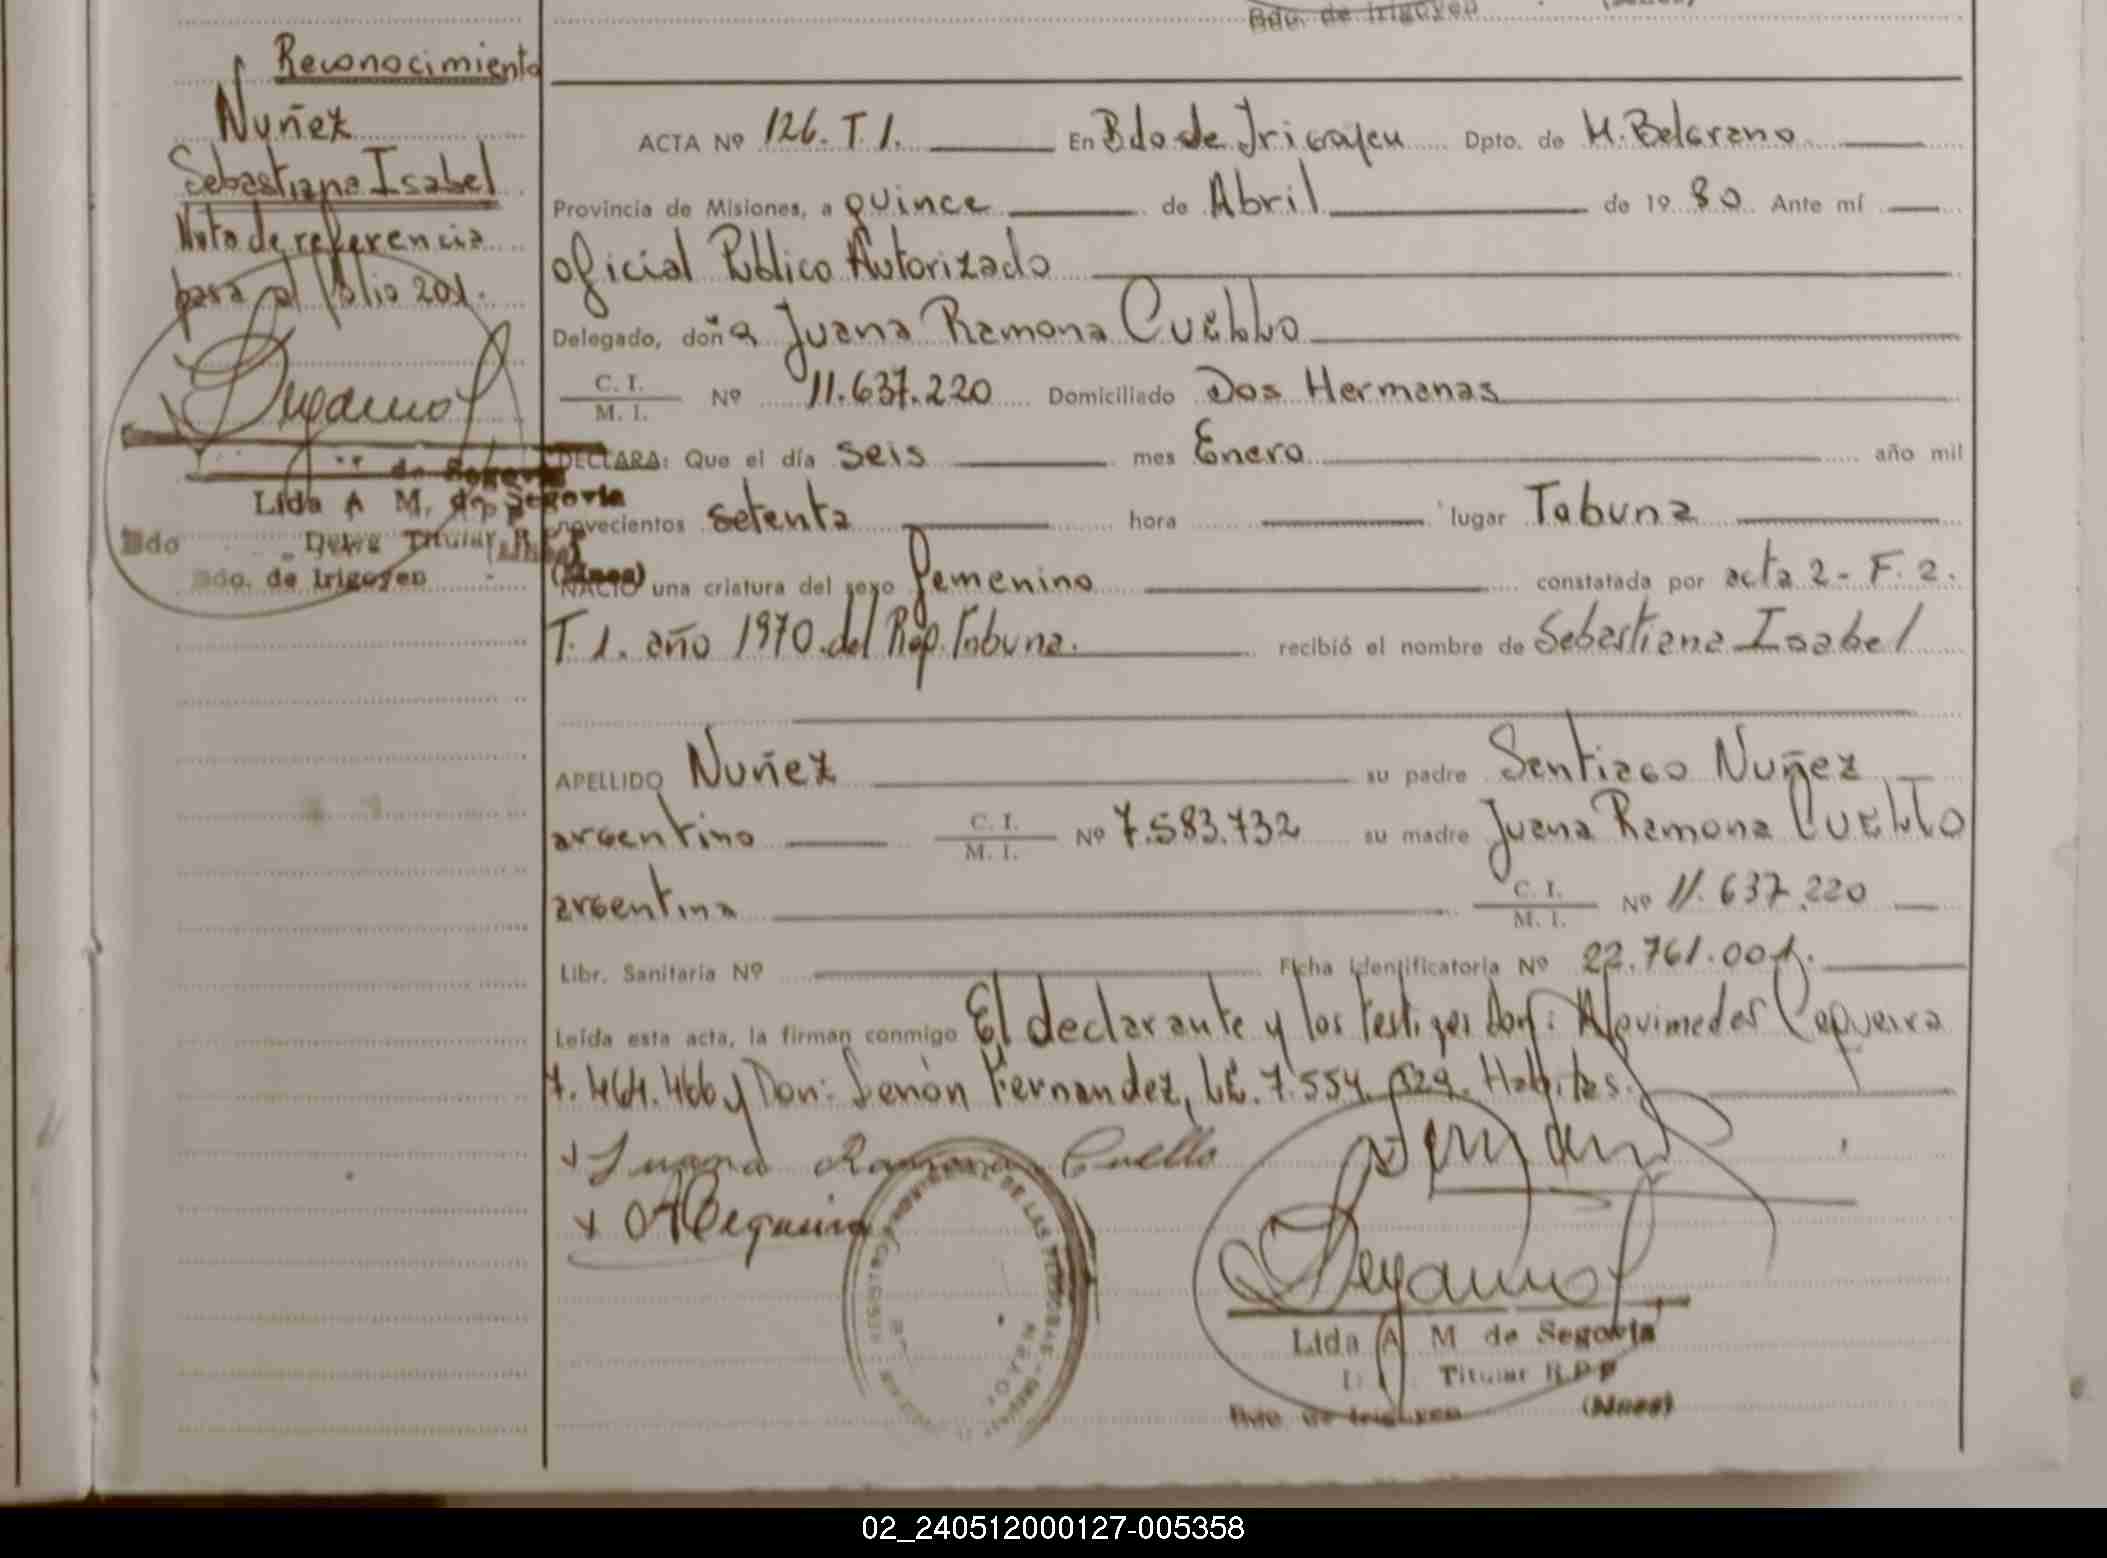 Bdo. de Irigoyen
Reconocimiento
Nuñez
Sebastiana Isabel
Nota de referencia
para el folio 201.
Lida A M. de Segovia
Titular
Bdo. de Irigoyen (Mnes)
ACTA Nº 126. T. 1. En Bdo de Irigoyen Dpto. de M. Belgrano
Provincia de Misiones, a quince de Abril de 19 80 Ante mí
Oficial Publico Autorizado
Delegado, doña Juana Ramona CUELLO
C. I. / M. I. Nº 11.637.220 Domiciliado Dos Hermanas
DECLARA: Que el día seis mes Enero año mil
novecientos setenta hora lugar Tobuna
NACIO una criatura del sexo femenino constatada por acta 2 - F. 2.
T. 1. año 1970 del Rep. Tobuna. recibió el nombre de Sebastiana Isabel
APELLIDO Nuñez su padre Santiago Nuñez
argentino C. I. / M. I. Nº 7.583.732 su madre Juana Ramona CUELLO
argentina C. I. / M. I. Nº 11.637.220
Libr. Sanitaria Nº Ficha identificatoria Nº 22.761.001.
Leída esta acta, la firman conmigo El declarante y los testigos Don: Cequeira
7.464.466 y Don: Senón Fernandez, LE. 7.554. Habites.
Juana Ramona Cuello
A Cequeira
Lida A M de Segovia
Titular R.P.P
Bdo. de Irigoyen (Mnes)
02_240512000127-005358